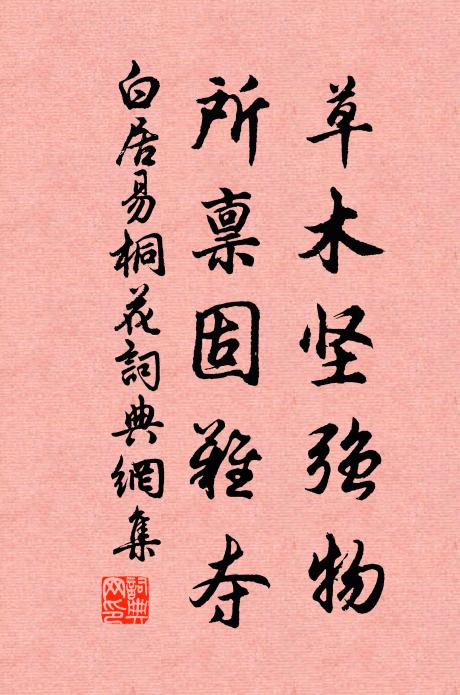 草木坚强物
所禀固难夺
白居易桐花詞典網集
詞典网印